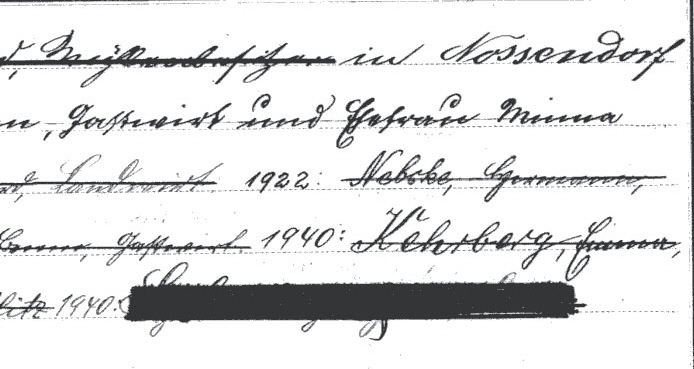 d, Mühlenbesitzer in Nossendorf
n, Gastwirt und Ehefrau Minna
rd, Landwirt. 1922: Nebske, Hermann,
Gastwirt. 1940: Kehrberg, Emma,
litz 1940: